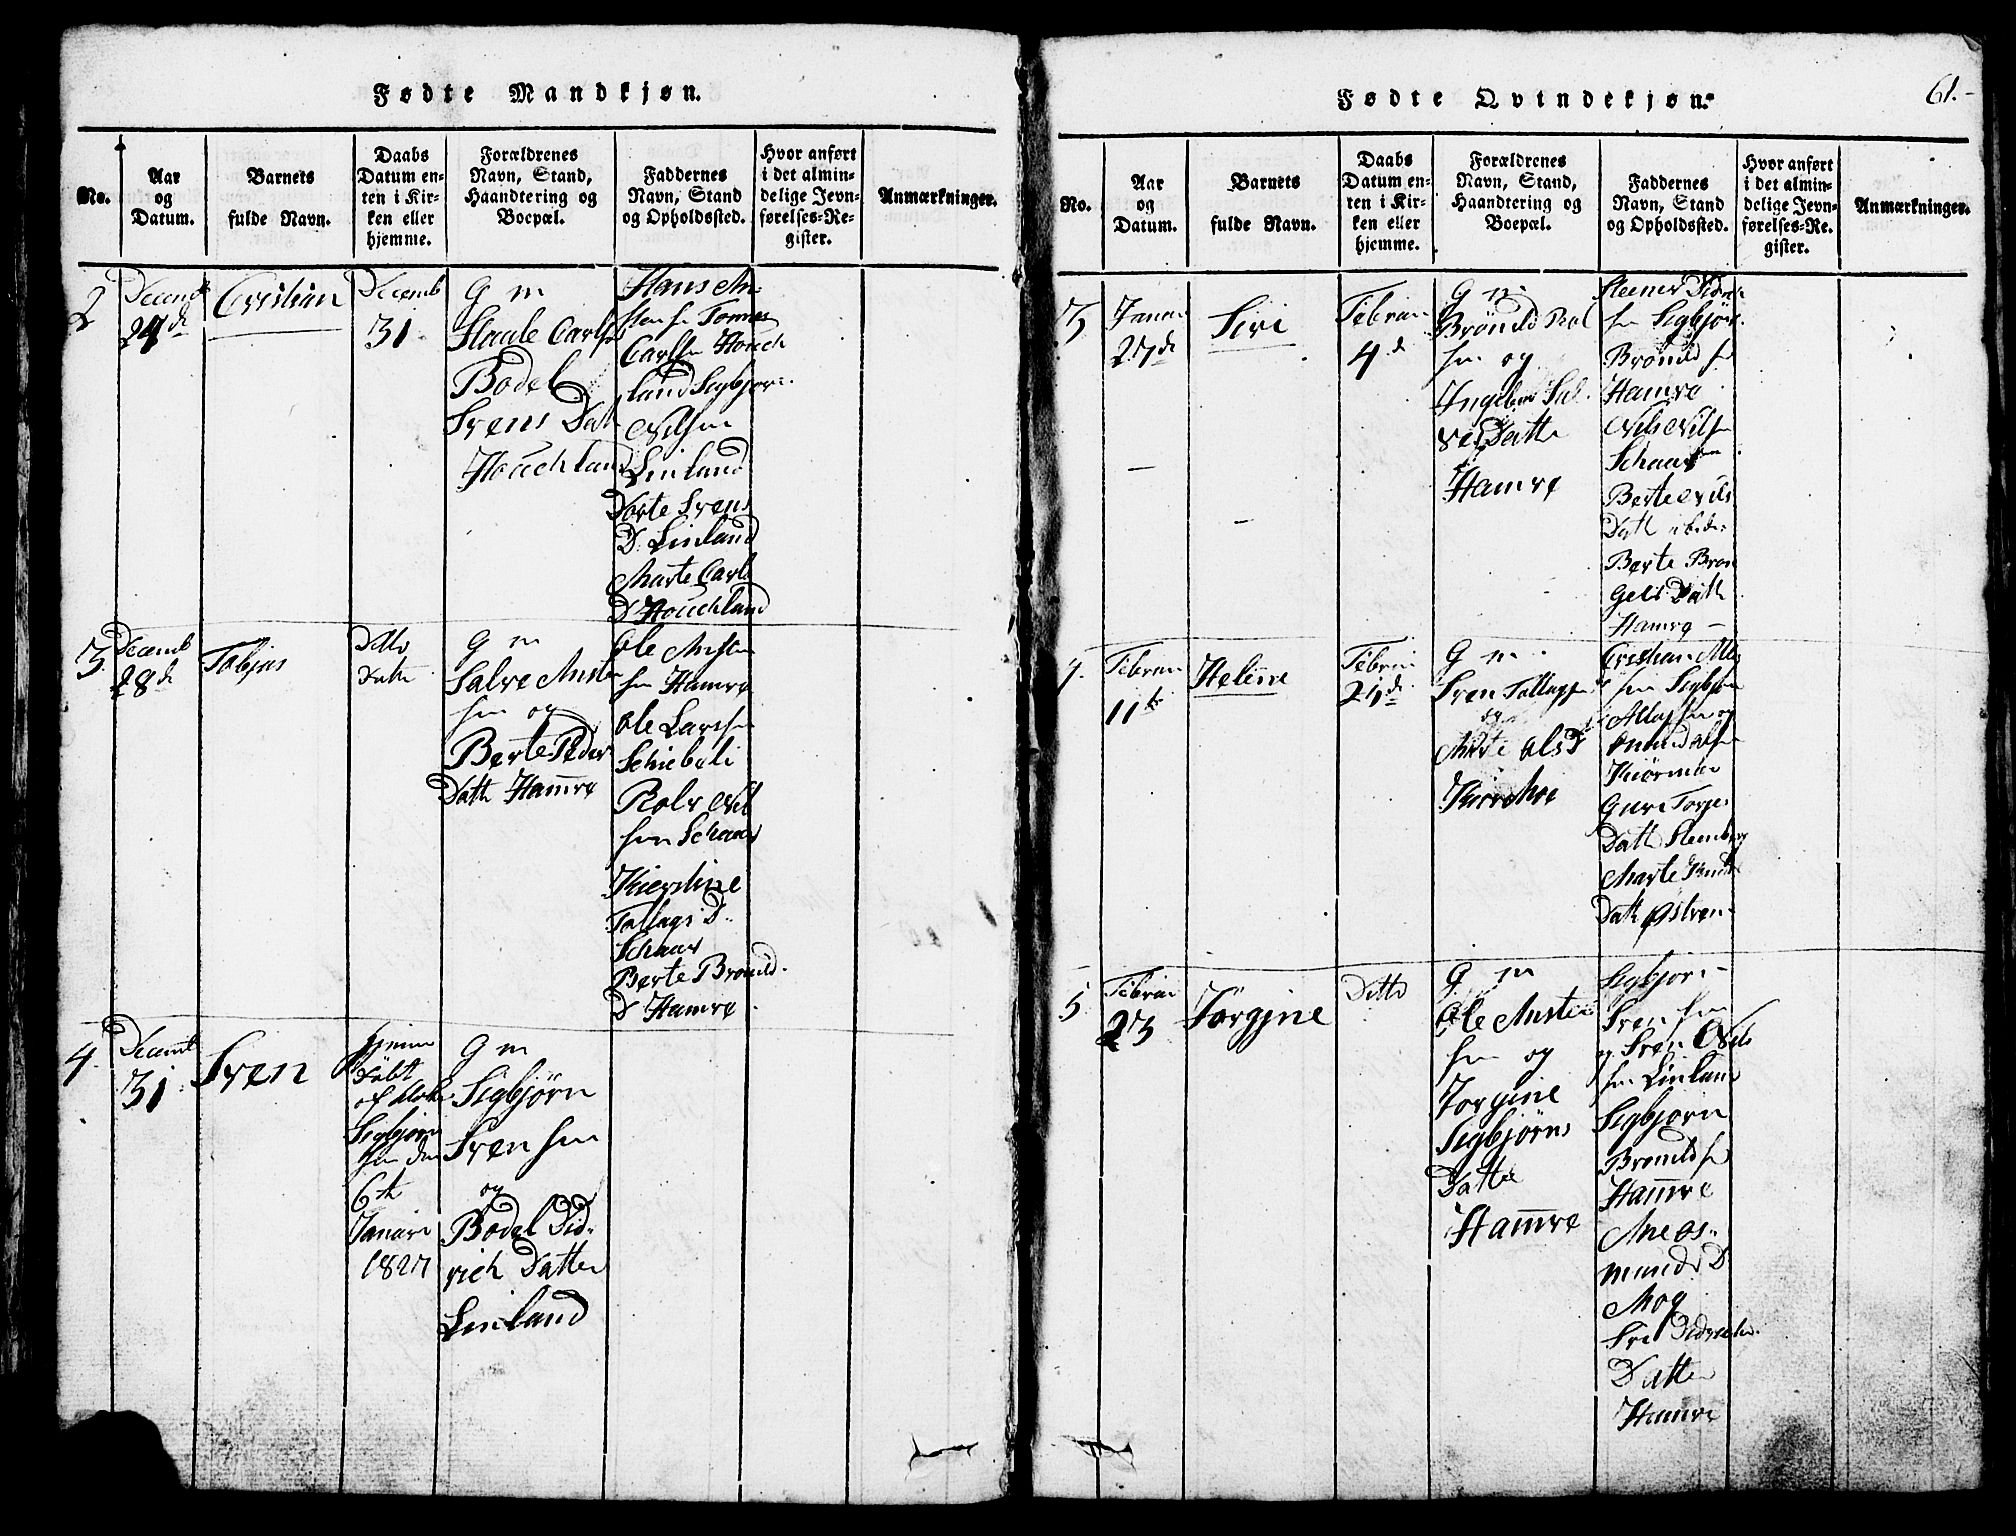 Fødte Mandkjøn.
No.
Aar
og
Datum.
Barnets
fulde Navn.
Daabs
Datum en-
ten i Kir-
ken eller
hjemme.
Forældrenes
Navn, Stand,
Haandtering og
Boepæl.
Faddernes
Navn, Stand
og Opholdssted.
Hvor anført
i det almin-
delige Jevn-
førelses-Re-
gister.
Anmærkninger.
2
Decemb
24de
Cristian
Decemb
31
G m
Staale Carls
Bodel
Svens Datt
Houchland
Hans An-
sten sn Tomas
Carlsen Houch
land Segbjør
Nilsen
Linland
Dorte Svens
D. Linland
Marte Carls
D Houchland
3
Decemb
28de
Tobias
Ditto
Datto
G m
Salve Austen
sen og
Berte Peder
Datt Hamre
Ole Austen
sen Hamre
Ole Larsen
Schieboli
Rolv Nil
sen Schaar
Kierstine
Tallags D.
Schaar
Berte Bronild.
D Hamre
4.
Decemb
31
Sven
hjemme
döbt
af
Segbjørn
sen den
6te
Januari
1827
G m
Segbjörn
Svensen
og
Bodel Did-
rich Datter
Linland
Fødte Qvindekjøn.
61.-
No.
Aar
og
Datum.
Barnets
fulde Navn.
Daabs
Datum en-
ten i Kir-
ken eller
hjemme.
Forældrenes
Navn, Stand,
Haandtering og
Boepæl.
Faddernes
Navn, Stand
og Opholdssted.
Hvor anført
i det almin-
delige Jevn-
førelses-Re-
gister.
Anmærkninger.
3
Januar
27de
Siri
Febrari
4de
G m
Brönild Rol
sen og
Ingebor Sal
ves Datte
Hamre
Steener Didr
sn Segbjör
Bronild sn
Hamre
Nils Nilsen
Schaar
Berte Nils
Datt
Berte Bron
Gels Datt
Hamre -
4.
Febrari
11te
Heline
Febrari
24de
G m
Sven Tallagsen
og
Marte Ols D
Kiörmoe
Cristian Alla
sen Segbjør
Allagsen og
Onund Olsen
Kiörmoe
Guri Torjes
Datt Stenberg
Marte Knuds
Datt Östren
5
Febrari
23
Jörgine
Ditto
G m
Ole Austen
sen og
Jorgine
Segbjörns
Datter
Hamre
Segbjor-
Svensen
og Sven Nils
sen Linland
Segbjorn
Bronild sn
Hamre
Ane Os-
munds D
Moe
Siri Didrichs
Datter
Hamre